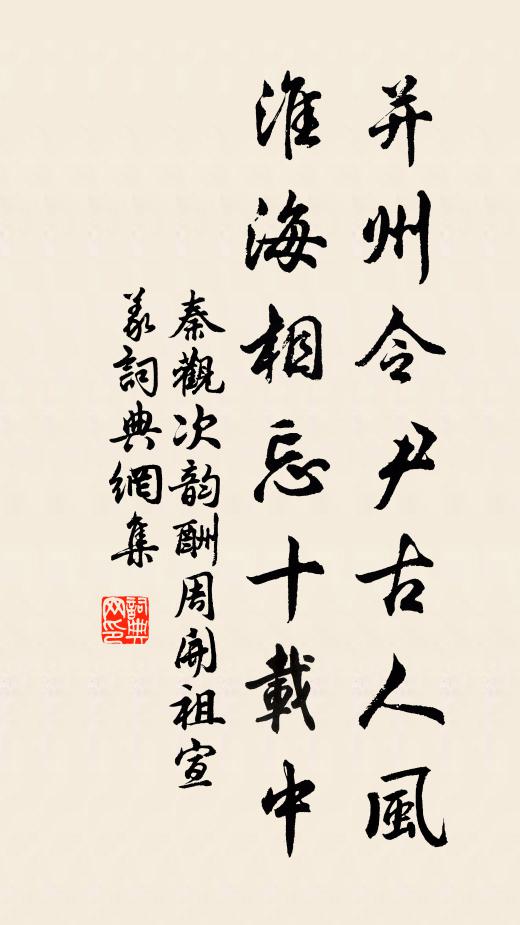 并州令尹古人風
淮海相忘十載中
秦觀次韵酬周開祖宣
義詞典網集
詞典
网印